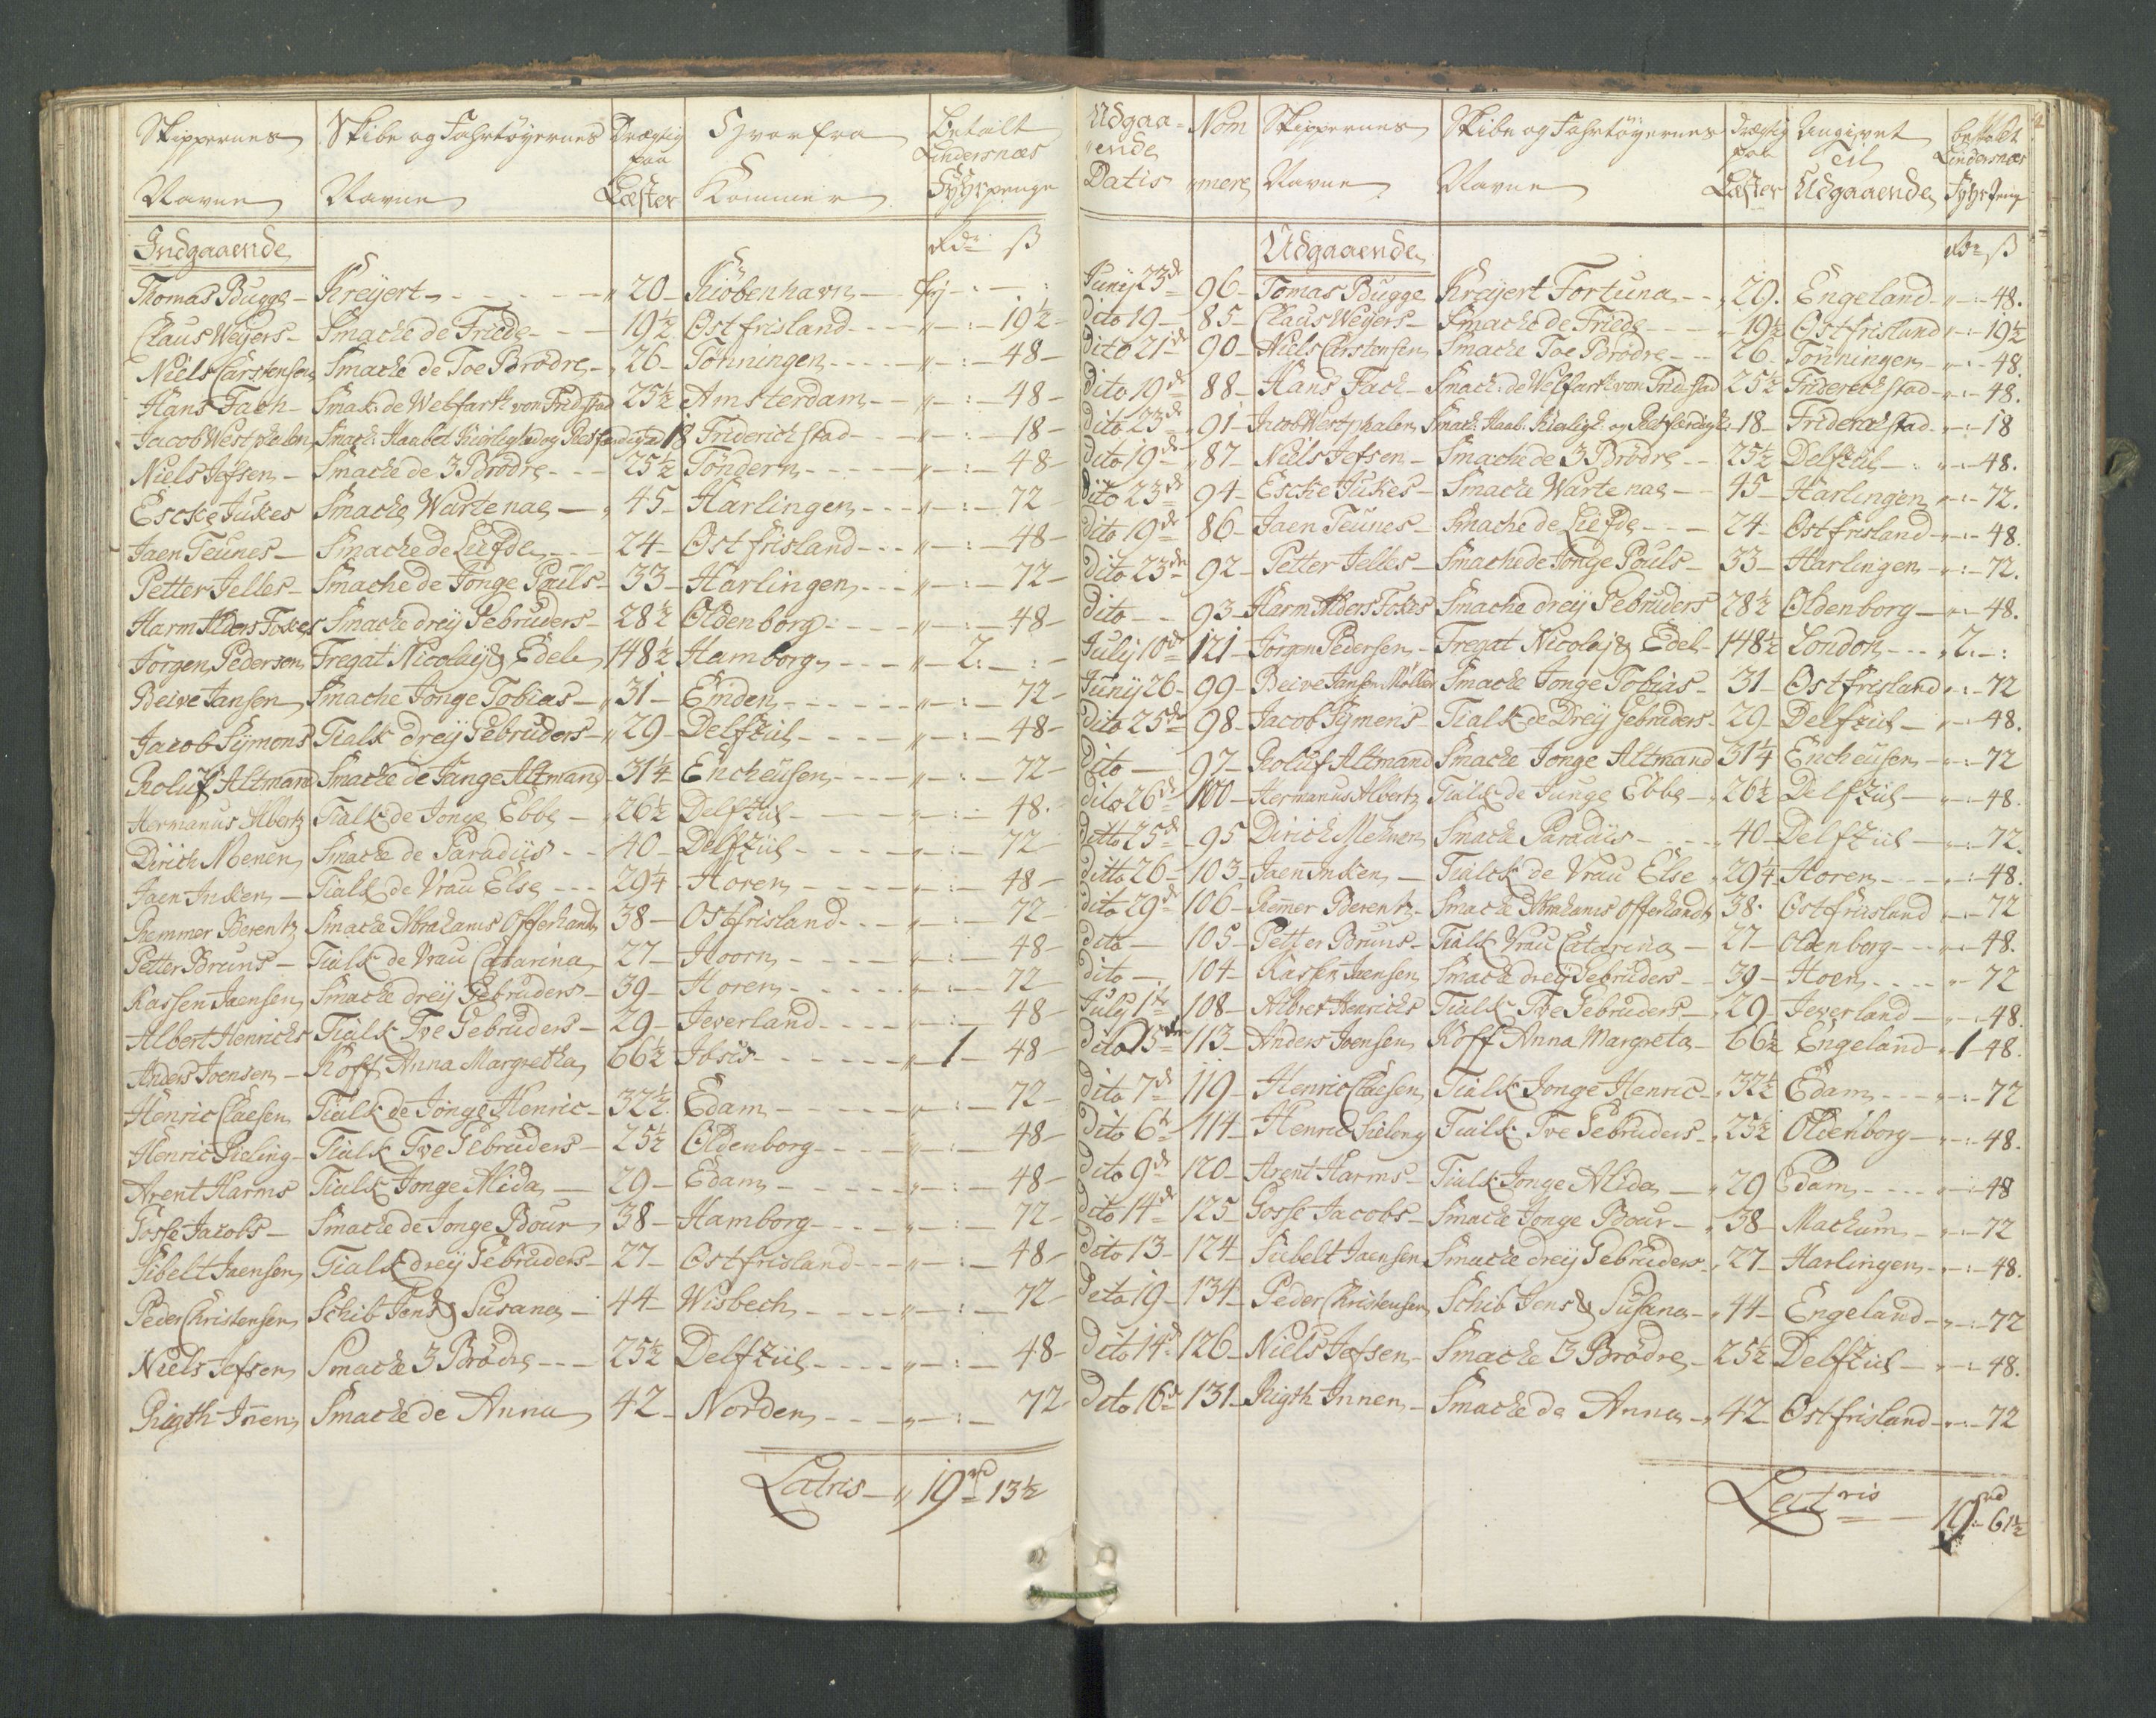 Skippernes Skibe og Fahrtøyernes Drægtig Hvorfra Betalt
paa Lindersnæs
Navne Navne Læster Kommer Fyhrpenge
Indgaaende Rdr ß
Thomas Bugge - Kreyert - - - 20 - Kiöbenhavn - fry - : - :
Claus Weyers - Smacke de Friede - - - 19½ Ostfrisland - - - " - : - 19½ -
Niels Carstensen Smacke de Toe Brødre - " 26 - Tönningen - - - " - : - 48 -
Hans Fach - Smak: de Webfart von Fridstad 25½ Amsterdam - - " - : - 48 -
Jacob Westphalen Smack: Haabet Kierlighed og Retfærdighed 18 Friderichstad - - - " - : - 18 -
Niels Jefsen - Smacke de 3 Brødre - - - 25½ Töndern - - - " - : - 48 -
Escke Jukes Smacke Warte nae - " 45 - Harlingen - - - " - : - 72 -
Jaen Teunes - Smacke de Liefde - - - 24 - Ostfrisland - - - " - : - 48 -
Petter Jelles - Smacke de Jonge Pauls - 33 - Harlingen - - - " - : - 72 -
Harm Alders Fokes Smacke dreij Gebruders - 28½ Oldenborg - - - " - : - 48 -
Jörgen Pedersen Fregat Nicolaij & Edel 148½ Hamborg - - - " - 2: - : -
Beive Jansen Smacke Jonge Tobias - " 31 - Emden - - - " - : - 72 -
Jacob Sijmons Tialk dreij Gebruders - " 29 - Delfziil - - - " - : - 48 -
Roluf Altmand Smacke de Junge Altmand 31¼ Encheusen - - - " - : - 72 -
Hermanus Albertz Tialk de Jonge Ebbe - " 26½ Delfziil - - - " - : - 48 -
Dirich Menen Smacke de Paradiis - - 40 - Delfziil - - - " - : - 72
Jaen Inken - Tialk de Vrau Else - - - 29¼ - Horen - - - " - : - 48 -
Remmer Berentz Smacke Abrahams Offerhand 38 - Ostfrisland - - - " - : - 72 -
Petter Bruns - Tialk de Vrau Catarina 27 - Hoorn - - - " - : - 48 -
Kassen Jaensen Smacke dreij Gebruders - 39 - Horen - - - " - : - 72 -
Albert Henrichs Tialk Tve Gebruders - 29 - Jeverland - - - " - : - 48 -
Anders Joensen - Koff Anna Margretha 66½ Jbsis - - - " 1 - 48 -
Henric Claesen Tialk de Jonge Henric - 32½ Edam - - - " - : - 72 -
Henric Sieling - Tialk Tve Gebruders - 25½ Oldenborg - - - " - : - 48 -
Arent Harms Tialk Jonge Alida - 29 - Edam - - - " - : - 48 -
Gosse Jacobs - Smacke de Jonge Bour 38 - Hamborg - - - " - : - 72 -
Sibelt Jaensen Tialk dreij Gebruders - 27 - Ostfrisland - - - " - : - 48 -
Peder Christensen Schib Jens & Susana - 44 - Wisbech - - - " - : - 72
Niels Jefsen Smacke 3 Brødre - - - 25½ Delfziil - - - " - : - 48 -
Rigth Iñen Smacke de Anna 42 - Norden - - - " - : - 72
Latris - " 19rd 13½
Udgaa- Nom Skippernes Skibe og Fahrtøyernes Drægtig Angivet betalt
ende paa Til Lindersnæs
Datis mere Navne Navne Læster Udgaaende Fyhrpenge
Udgaaende Rdr ß
Junij 23de 96 - Tomas Bugge Kreyert Fortuna - - " 20. Engeland - " - : - 48.
Dito 19 - 85 - Claus Weyers - Smacke de Friede - - - 19½ Ostfrisland " - : - 19½
Dito 21de 90 - Niels Carstensen Smacke Toe Brødre - - 26 - Tönningen - " - : - 48.
Dito 19de 88 - Hans Fach - Smack: de Welfart von Fridstad 25½ Friderichstad - " - : - 48.
Dito 23de 91 - Jacob Westphalen Smack: Haab: Kierligh: og Retfærdigh: 18 - Friderichstad - " - : - 18
Dito 19de 87 - Niels Jefsen - Smacke de 3 Brødre - - 25½ Delfziil - " - : - 48.
Dito 23de 94 - Escke Jukes - Smacke Warte nae - - 45 - Harlingen " - : - 72.
Dito 19de 86 - Jaen Teunes - Smacke de Liefde - - - 24 - Ostfrisland - " - : - 48.
Dito 23de 92 - Petter Jelles - Smacke de Jonge Pouls - 33 - Harlingen - " - : - 72.
Dito - - 93 - Harm Alders Fokes Smacke dreij Gebruders 28½ Oldenborg - " - : - 48.
Julij 10de 121 - Jörgen Pedersen - Fregat Nicolaj & Edel - 148½ London - - - " 2. - :
Junij 26 - 99 - Beive Jansen Möller Smacke Jonge Tobias - 31 - Ostfrisland " - : - 72
Dito 25de 98 - Jacob Sijmens - Tialk de Dreij Gebruders - 29 - Delfziil - " - : - 48.
Dito - 97 - Roluf Altmand Smacke Jonge Altmand 31¼ Encheusen - " - : - 72
Dito 26de 100 - Hermanus Albertz Tialk de Junge Ebbe - " 26½ Delfziil - " - : - 48.
Ditto 25de - 95 Dirich Mehnen Smack Paradiis - - - " 40 - Delfziil - " - : - 72.
Ditto 26 - 103 - Jaen Inken - Tialck de Vrau Else " 29¼ - Horen - - - " - : - 48.
Dito 29de 106 - Remer Berentz - Smack Abrahams Offerhandt 38 - Ostfriisland " - : - 72
Dito - 105 - Petter Bruns - Tialk Vrau Catarina - 27 - Oldenborg - - " - : - 48.
Dito - 104 - Kassen Jaensen Smack dreij Gebruders - - 39 - Hoen - - - " - 72
July 1de 108 - Albret Henrichs Tialk Tve Gebruders - " 29 - Jeverland - " - : - 48.
Dito 5de 113 - Anders Joensen Koff Anna Margreta - 66½ Engeland - " 1 - 48.
Dito 7de 119 - Henric Claesen Tialk Jonge Henric - " 32½ Edam - - - " - : - 72
Dito 6te 114 - Henric Sielong Tialk Tve Gebruders - " 25½ Oldenborg - " - : - 48.
Dito 9de 120 - Arent Harms - Tialk Jonge Alida - " 29 Edam - - - " - : - 48
Dito 14de 125 - Gosse Jacobs - Smacke Jonge Bour - " 38 - Mackum - " - : - 72
Dito 13 - 124 - Siebelt Jaensen Smacke dreij Gebruders - " 27 - Harlingen - " - : - 48.
Deto 19 - 134 - Peder Christensen Schib Jens & Susana - " 44 - Engeland - " - : - 72
Dito 14d 126 - Niels Jefsen - Smacke 3 Brødre - 25½ Delfziil - " - : - 48.
Dito 16d 131 - Rigth Innen - Smacke de Anna - " 42 - Ostfrisland - " - : - 72
Latris - 19rd 61½